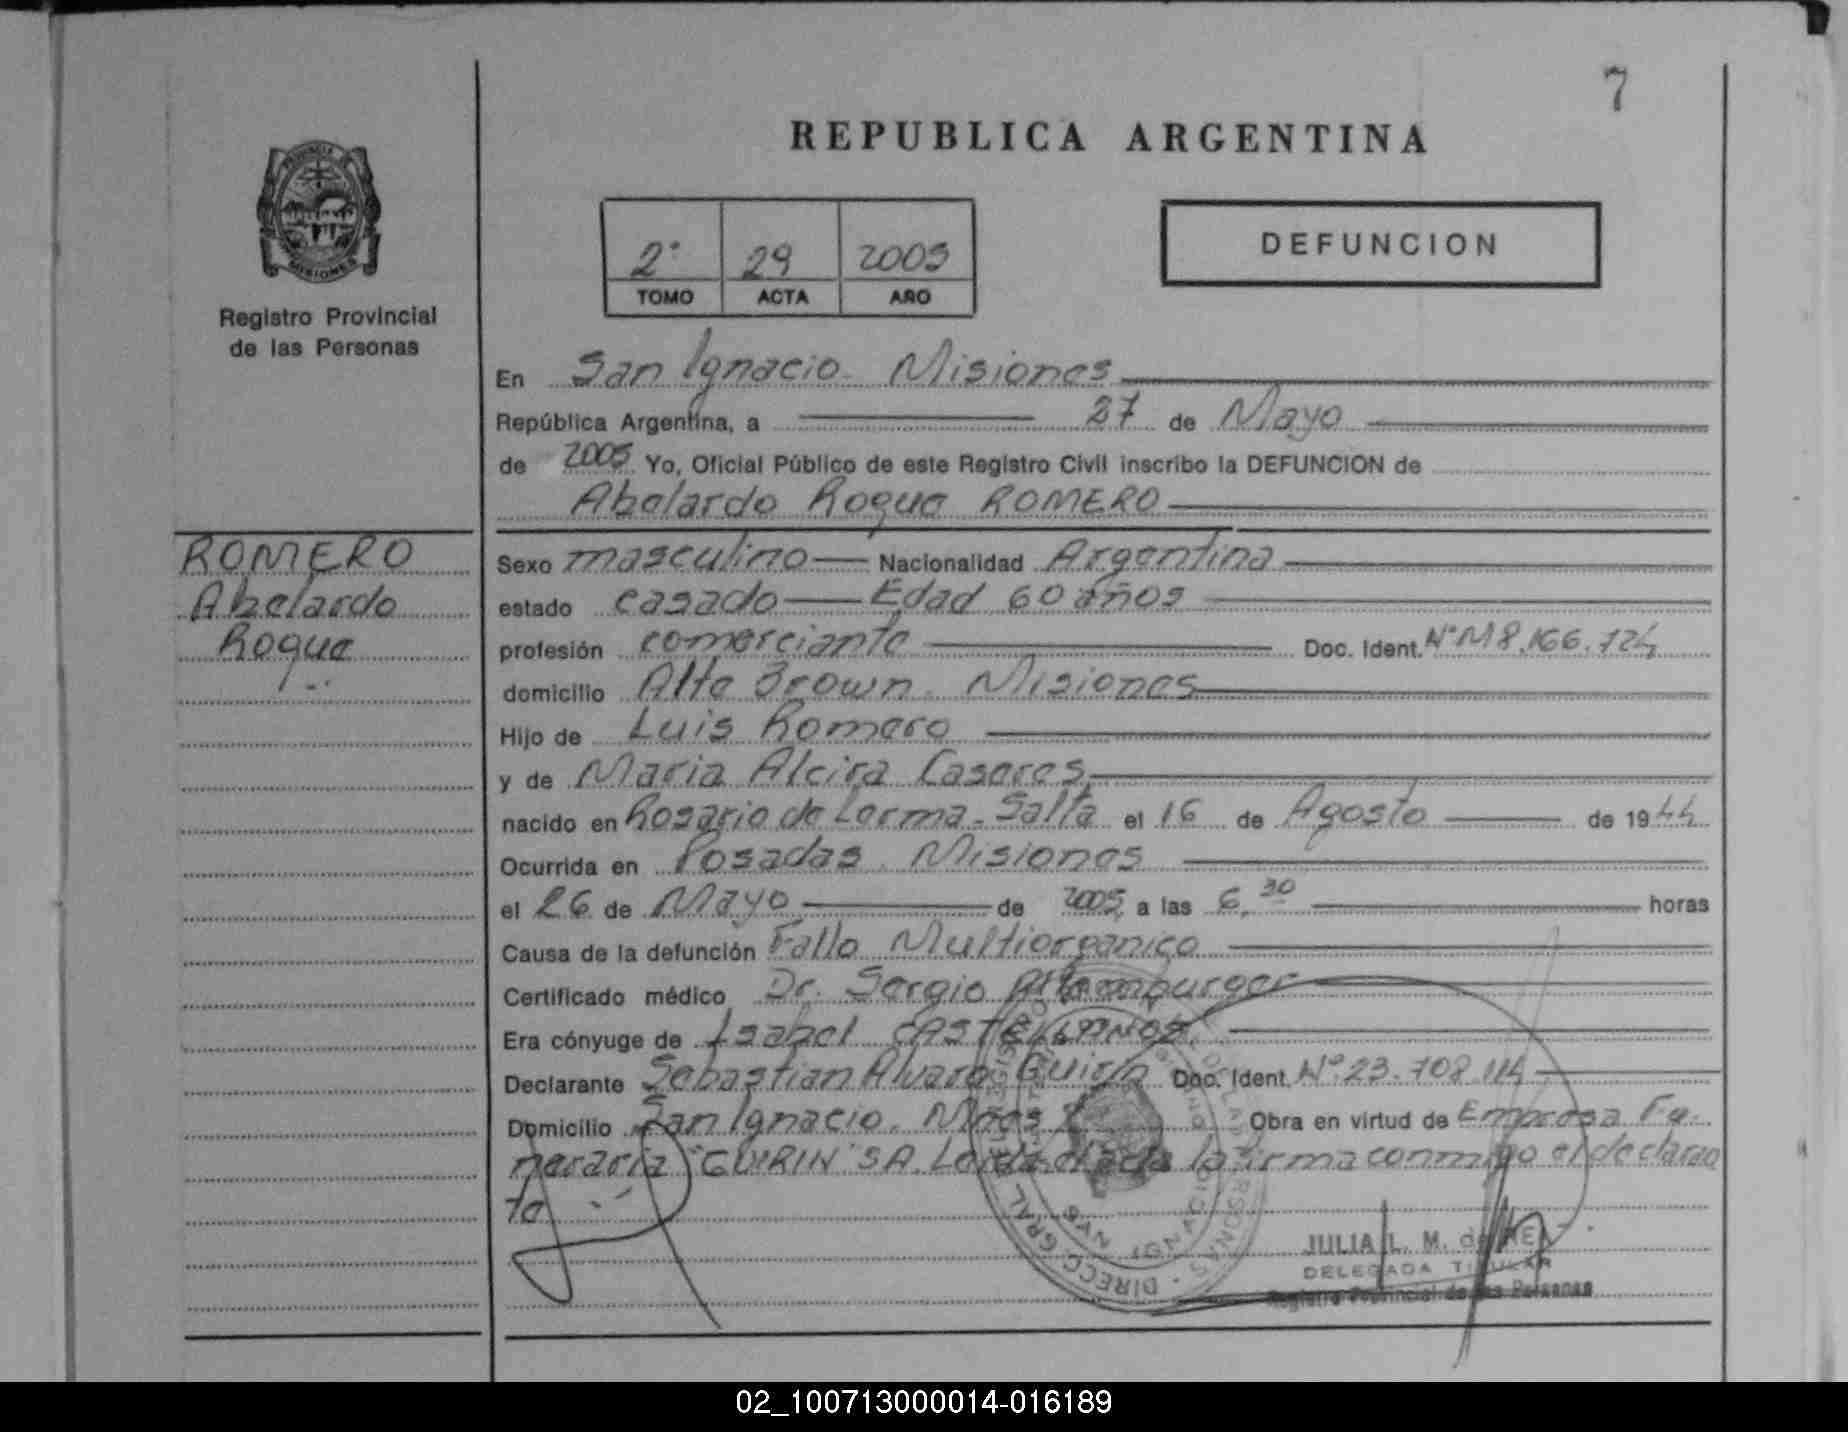 7
REPUBLICA ARGENTINA
PROVINCIA DE
MISIONES
Registro Provincial
de las Personas
2° 29 2005
TOMO ACTA AÑO
DEFUNCION
En San Ignacio Misiones
República Argentina, a 27 de Mayo
de 2005 Yo, Oficial Público de este Registro Civil inscribo la DEFUNCION de
Abelardo Roque ROMERO
ROMERO
Abelardo
Roque
Sexo masculino Nacionalidad Argentina
estado casado Edad 60 años
profesión comerciante Doc. Ident. N° M8.166.724
domicilio Alte Brown. Misiones
Hijo de Luis Romero
y de Maria Alcira Caseres
nacido en Rosario de Lerma - Salta el 16 de Agosto de 1944
Ocurrida en Posadas. Misiones
el 26 de Mayo de 2005 a las 6,30 horas
Causa de la defunción Fallo Multiorganico
Certificado médico Dr. Sergio
Era cónyuge de Isabel CASTELLANOS
Declarante Sebastian Alvaro Doc. Ident. N° 23.708.114
Domicilio San Ignacio. Mnes Obra en virtud de Empresa Fu-
neraria "GUIRIN" SA. Leida el acta la firma conmigo el declaran
te
JULIA L. M. de
DELEGADA TITULAR
Registro Provincial de las Personas
02_100713000014-016189